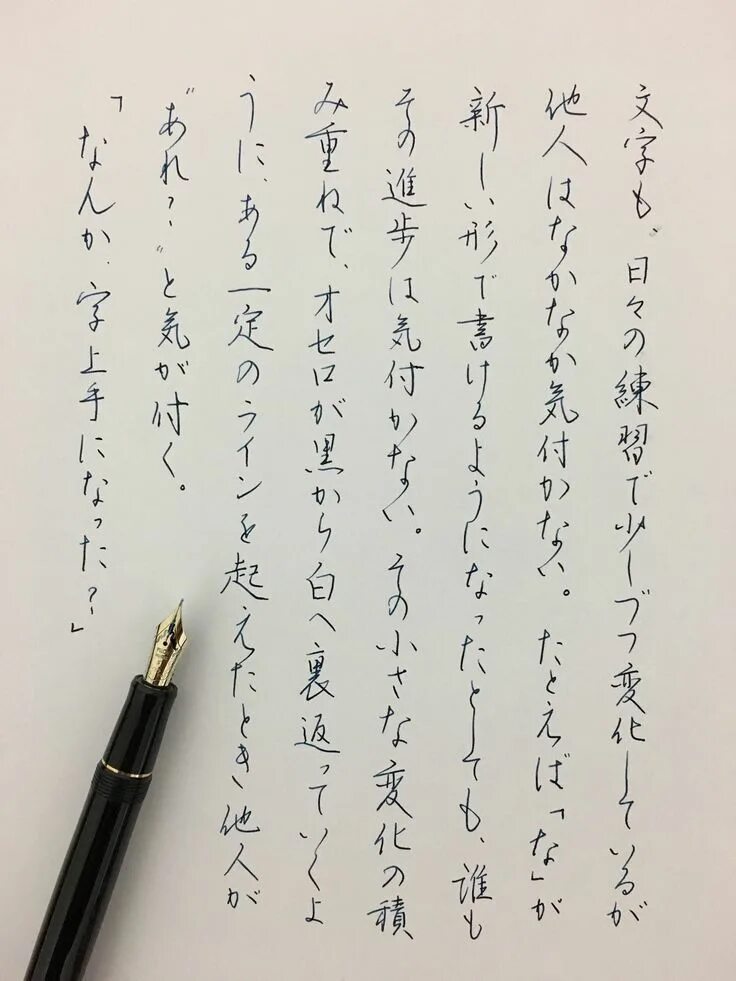 文字も、日々の練習で少しづつ変化しているが
他人はなかなか気付かない。たとえば「な」が
新しい形で書けるようになったとしても、誰も
その進歩は気付かない。その小さな変化の積
み重ねで、オセロが黒から白へ裏返っていくよ
うに、ある一定のラインを起えたとき他人が
“あれ？”と気が付く。
「なんか、字上手になった？」